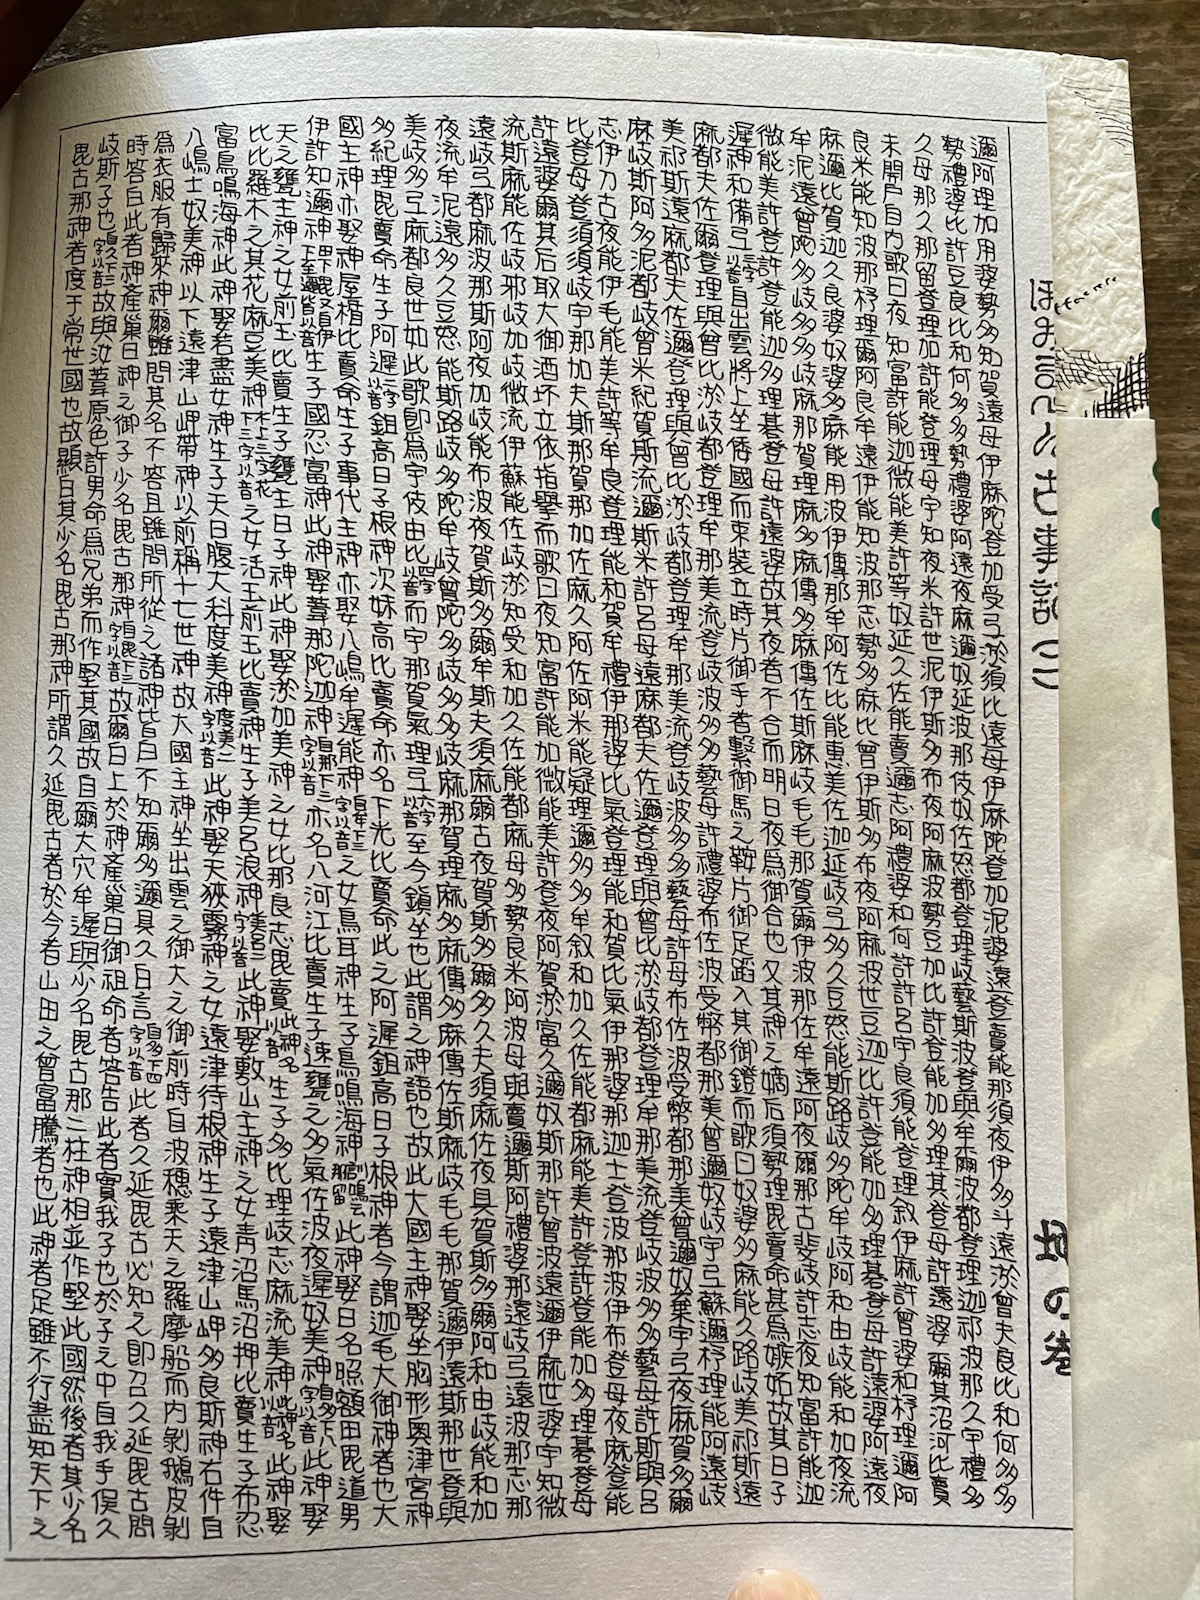 地の巻
邇阿理加用婆勢多知賀遠母伊麻陀登加受弖淤須比遠母伊麻陀登加泥婆遠登賣能那須夜伊多斗遠淤曾夫良比和何多多
勢禮婆比許豆良比和何多多勢禮婆阿遠夜麻邇奴延波那伎奴佐怒都登理岐藝斯波登與牟爾波都登理迦祁波那久宇禮多
久母那久那留登理加許能登理母宇知夜米許世泥伊斯多布夜阿麻波勢豆加比許登能加多理其登母許遠婆爾其沼河比賣
未開戸自内歌曰夜知富許能迦微能美許等奴延久佐能賣邇志阿禮婆和何許許呂宇良須能登理叙伊麻許曾婆和杼理邇阿
良米能知波那杼理爾阿良牟遠伊能知波那志勢多麻比曾伊斯多布夜阿麻波世豆迦比許登能加多理碁登母許遠婆阿遠夜
麻邇比賀迦久良婆奴婆多麻能用波伊傳那牟阿佐比能惠美佐迦延岐弖多久豆怒能斯路岐多陀牟岐阿和由岐能和加夜流
牟泥遠曾陀多岐多多岐麻那賀理麻多麻傳多麻傳佐斯麻岐毛毛那賀爾伊波那佐牟遠阿夜爾那古斐岐許志夜知富許能迦
微能美許登許登能迦多理碁登母許遠婆故其夜者不合而明日夜爲御合也又其神之嫡后須勢理毘賣命甚爲嫉妬故其日子
遲神和備弖三字以音自出雲將上坐倭國而束裝立時片御手者繫御馬之鞍片御足蹈入其御鐙而歌曰奴婆多麻能久路岐美祁斯遠
麻都夫佐爾登理與曾比淤岐都登理牟那美流登岐波多多藝母許禮婆布佐波受幣都那美曾邇奴岐宇弖蘇邇杼理能阿遠岐
美祁斯遠麻都夫佐邇登理與曾比淤岐都登理牟那美流登岐波多多藝母許母布佐波受幣都那美曾邇奴棄宇弖夜麻賀多爾
麻岐斯阿多泥都岐曾米紀賀斯流邇斯米許呂母遠麻都夫佐邇登理與曾比淤岐都登理牟那美流登岐波多多藝母許斯與呂
志伊刀古夜能伊毛能美許等牟良登理能和賀牟禮伊那婆比氣登理能和賀比氣伊那婆那迦士登波那波伊布登母夜麻登能
比登母登須須岐宇那加夫斯那賀那加佐麻久阿佐阿米能疑理邇多多牟叙和加久佐能都麻能美許登許登能加多理碁登母
許遠婆爾其后取大御酒坏立依指擧而歌曰夜知富許能加微能美許登夜阿賀淤富久邇奴斯那許曾波遠邇伊麻世婆宇知微
流斯麻能佐岐邪岐加岐微流伊蘇能佐岐淤知受和加久佐能都麻母多勢良米阿波母與賣邇斯阿禮婆那遠岐弖遠波那志那
遠岐弖都麻波那斯阿夜加岐能布波夜賀斯多爾牟斯夫須麻爾古夜賀斯多爾多久夫須麻佐夜具賀斯多爾阿和由岐能和加
夜流牟泥遠多久豆怒能斯路岐多陀牟岐曾陀多岐多多岐麻那賀理麻多麻傳多麻傳佐斯麻岐毛毛那賀邇伊遠斯那世登與
美岐多弖麻都良世如此歌卽爲宇伎由比四字以音而宇那賀氣理弖六字以音至今鎭坐也此謂之神語也故此大國主神娶坐胸形奧津宮神
多紀理毘賣命生子阿遲二字以音鉏高日子根神次妹高比賣命亦名下光比賣命此之阿遲鉏高日子根神者今謂迦毛大御神者也大
國主神亦娶神屋楯比賣命生子事代主神亦娶八嶋牟遲能神自牟下三字以音之女鳥耳神生子鳥鳴海神訓鳴云那留此神娶日名照額田毘道男
伊許知邇神田下毘又自伊下至邇皆以音生子國忍富神此神娶葦那陀迦神自那下三字以音亦名八河江比賣生子速甕之多氣佐波夜遲奴美神自多下八字以音此神娶
天之甕主神之女前玉比賣生子甕主日子神此神娶淤加美神之女比那良志毘賣此神名以音生子多比理岐志麻流美神此神名以音此神娶
比比羅木之其花麻豆美神木上三字花下三字以音之女活玉前玉比賣神生子美呂浪神美呂二字以音此神娶敷山主神之女青沼馬沼押比賣生子布忍
富鳥鳴海神此神娶若盡女神生子天日腹大科度美神度美二字以音此神娶天狹霧神之女遠津待根神生子遠津山岬多良斯神右件自
八嶋士奴美神以下遠津山岬帶神以前稱十七世神故大國主神坐出雲之御大之御前時自波穗乘天之羅摩船而内剝鵝皮剝
爲衣服有歸來神爾雖問其名不答且雖問所從之諸神皆白不知爾多邇具久白言自多下四字以音此者久延毘古必知之卽召久延毘古問
時答白此者神產巢日神之御子少名毘古那神自毘下三字以音故爾白上於神產巢日御祖命者答告此者實我子也於子之中自我手俣久
岐斯子也自久下三字以音故與汝葦原色許男命爲兄弟而作堅其國故自爾大穴牟遲與少名毘古那二柱神相並作堅此國然後者其少名
毘古那神者度于常世國也故顯白其少名毘古那神所謂久延毘古者於今者山田之曾富騰者也此神者足雖不行盡知天下之